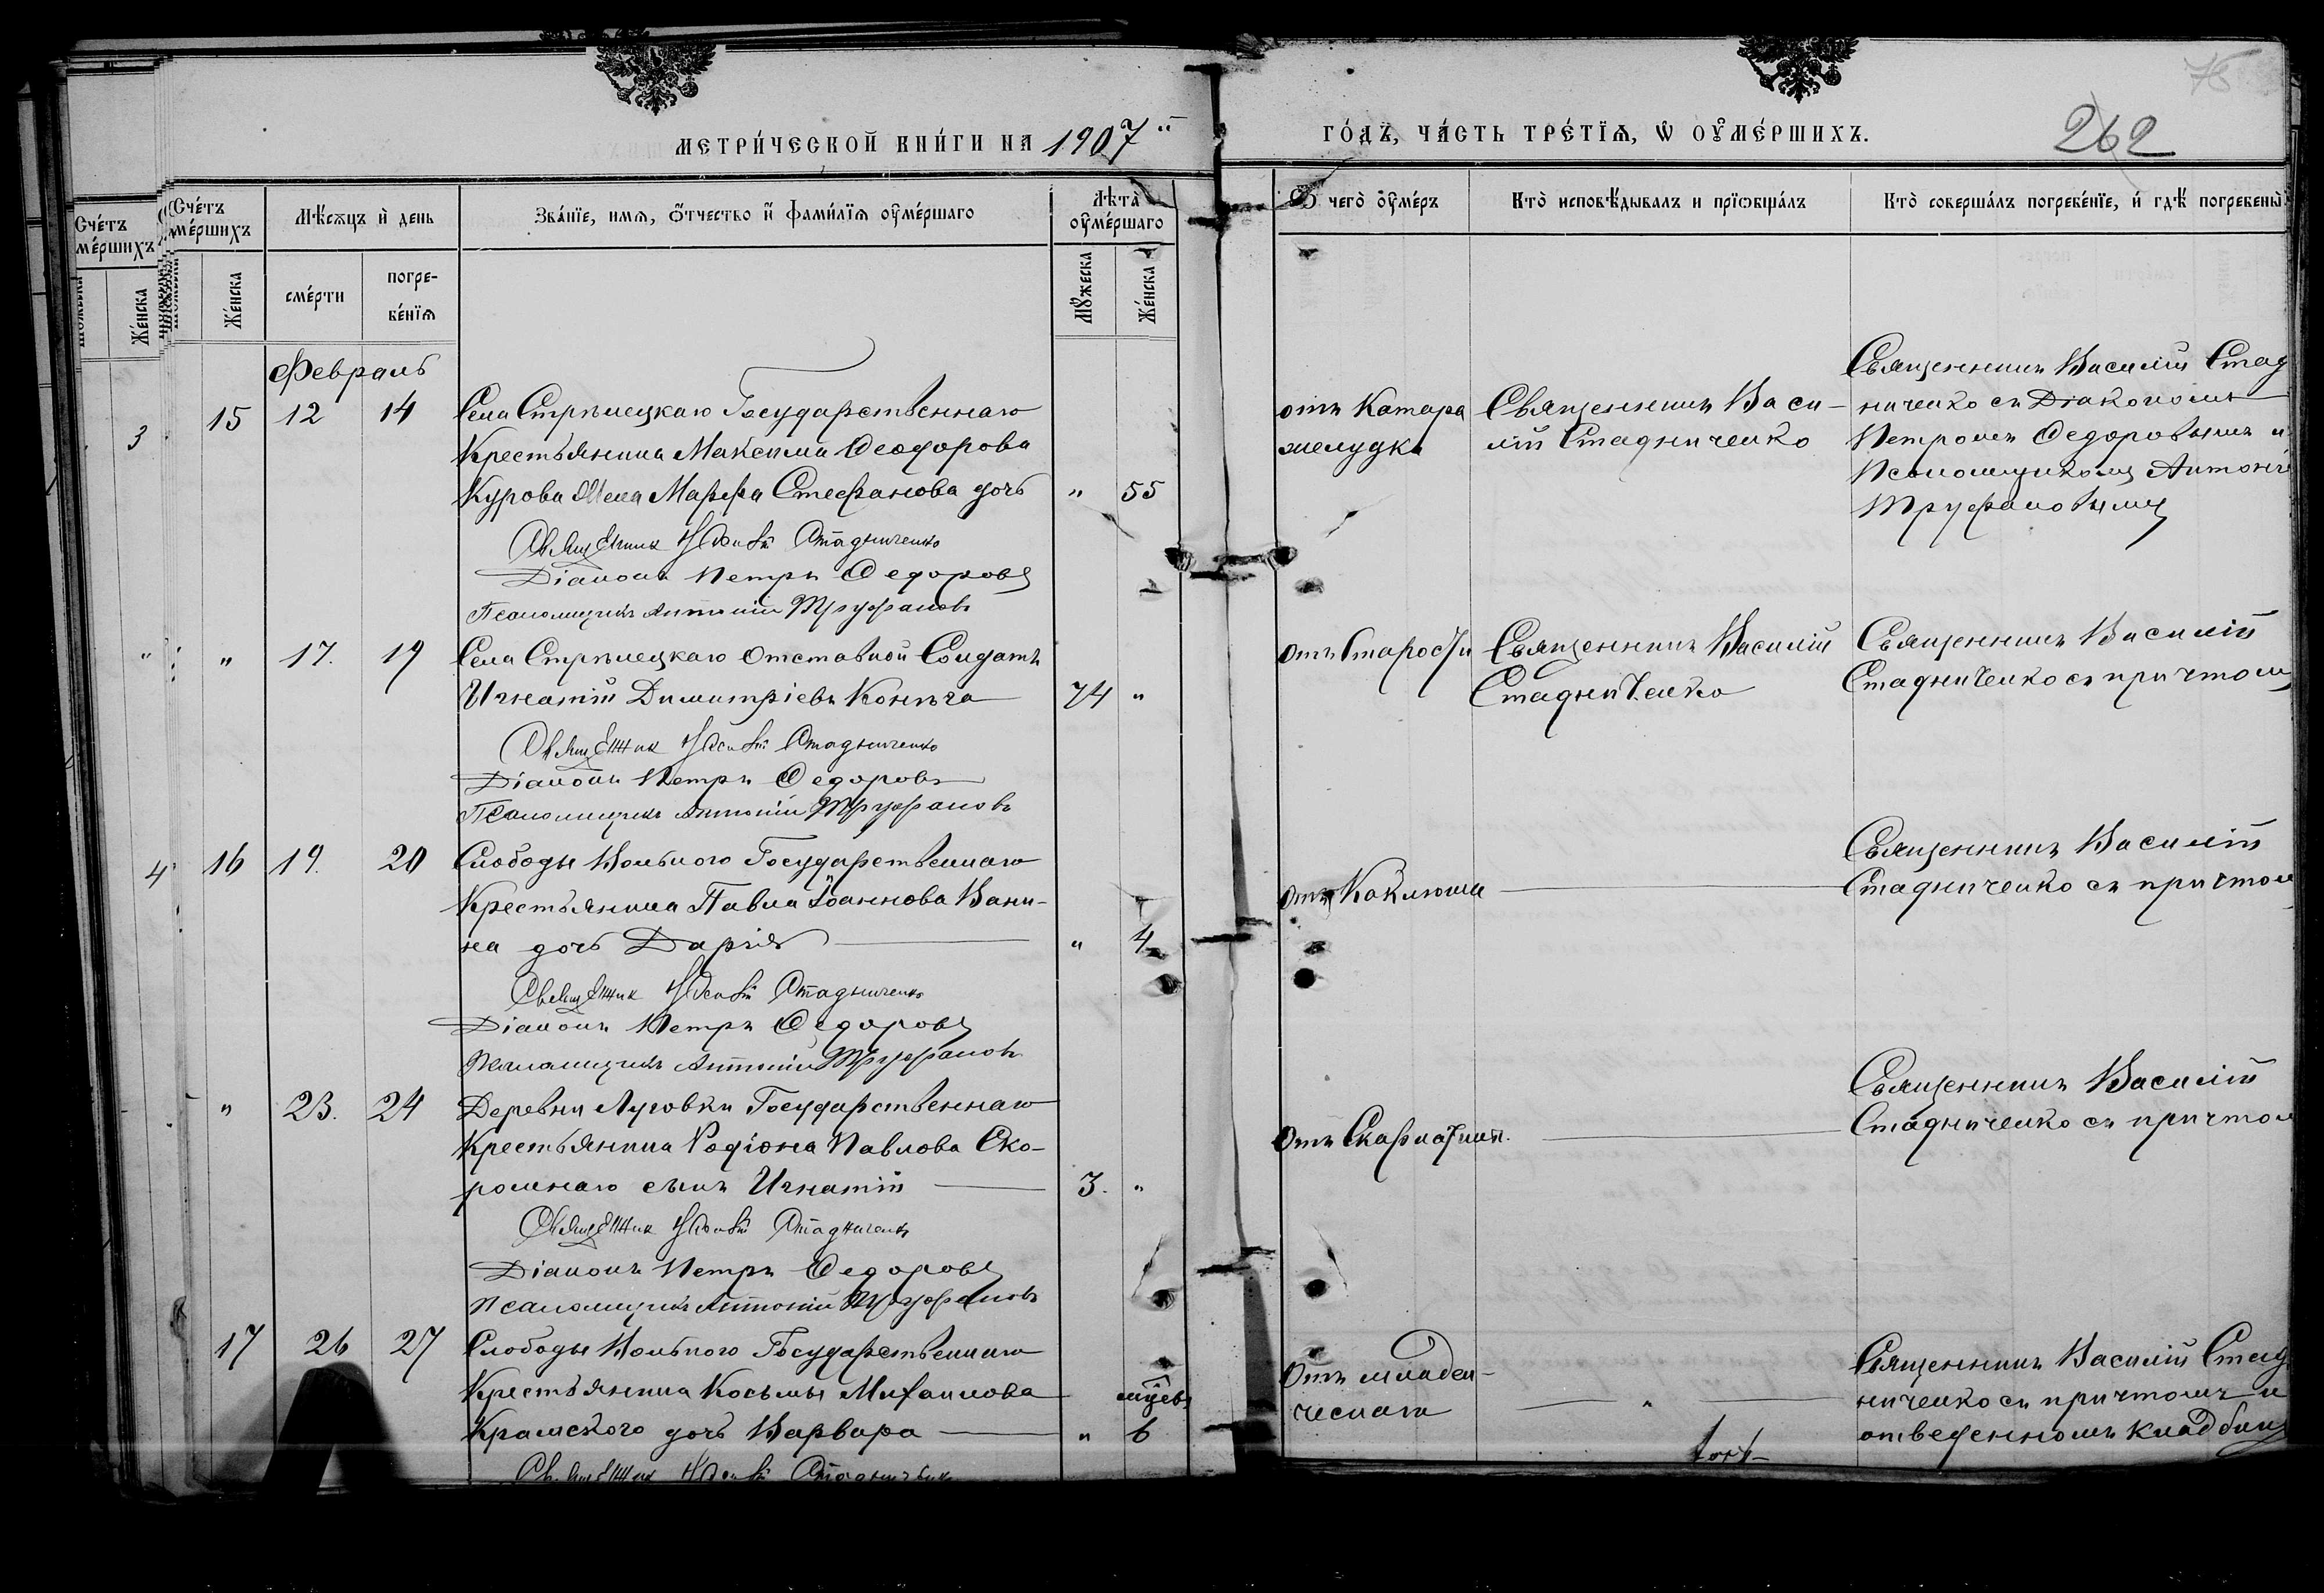 МЕТРИ́ЧЕСКОЙ КНИ́ГИ НА 1907 й
ГО́ДЪ, ЧА́СТЬ ТРЕ́ТЇѦ, Ѡ ОУМЕ́РШИХЪ.
262
76
Сче́тъ
ме́ршихъ
Же́нска
3
"
4
Сче́тъ
ме́ршихъ
Же́нска
Мѣ́сѧцъ и҆ день
сме́рти
погре-
ве́нїѧ
Зва́нїе, имѧ, ѻ҆́тчество и҆ фами́лїѧ оу҆ме́ршаго
Лѣта̀
оу҆ме́ршаго
Мꙋ́жеска
Же́нска
Ѿ чегѡ̀ оу҆ме́ръ
Кто̀ исповѣ́дывалъ и прїѡбща́лъ
Кто̀ соверша́лъ погребе́нїе, и҆ гдѣ̀ погребены̀
Февраль
15 12 14
Села Стрѣлецкаго Государственнаго
Крестьянина Максима Феодорова
Курова Жена Марѳа Стефанова дочь " 55
Священник Василий Стадниченко
Діаконъ Петръ Федоровъ
Псаломщикъ Антоній Труфановъ
отъ Катара
желудка
Священникъ Васи-
лій Стадниченко
Священникъ Василій Стад
ниченко съ Діакономъ
Петромъ Федоровымъ и
Псаломщикомъ Антоні
Труфановымъ
" 17. 19
Села Стрѣлецкаго Отставной Солдатъ
Игнатій Димитріевъ 74 "
Священник Василий Стадниченко
Діаконъ Петръ Федоровъ
Псаломщикъ Антоній Труфановъ
Отъ Старости
Священникъ Василій
Стадниченко
Священникъ Василій
Стадниченко съ причтомъ
16 19. 20
Слободы Вольного Государственнаго
Крестьянина Павла Іоаннова Вани-
на дочь Дарія " 4
Священник Василий Стадниченко
Діаконъ Петръ Федоровъ
Псаломщикъ Антоній Труфановъ
Отъ Коклюша
Священникъ Василій
Стадниченко съ причтом
" 23. 24
Деревни Луговки Государственнаго
Крестьянина Родіона Павлова Ско-
ромнаго сынъ Игнатій 3. "
Священник Василий Стадниченко
Діаконъ Петръ Федоровъ
Псаломщикъ Антоній Труфановъ
Отъ Скарлатины.
Священникъ Василій
Стадниченко съ причтом
17 26 27
Слободы Вольного Государственнаго
Крестьянина Косьмы Михаилова
мцевъ
Крамского дочь Варвара " 6
Священник Василий Стадниченко
Отъ младен-
ческаго
"
Священникъ Василій Стад
ниченко съ причтомъ и
отведенномъ кладбищ